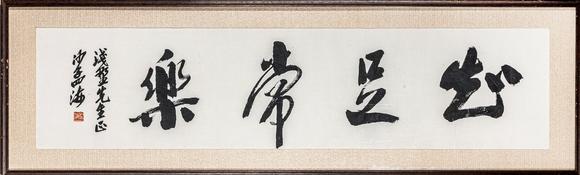 知足常樂
先生正
沙孟海